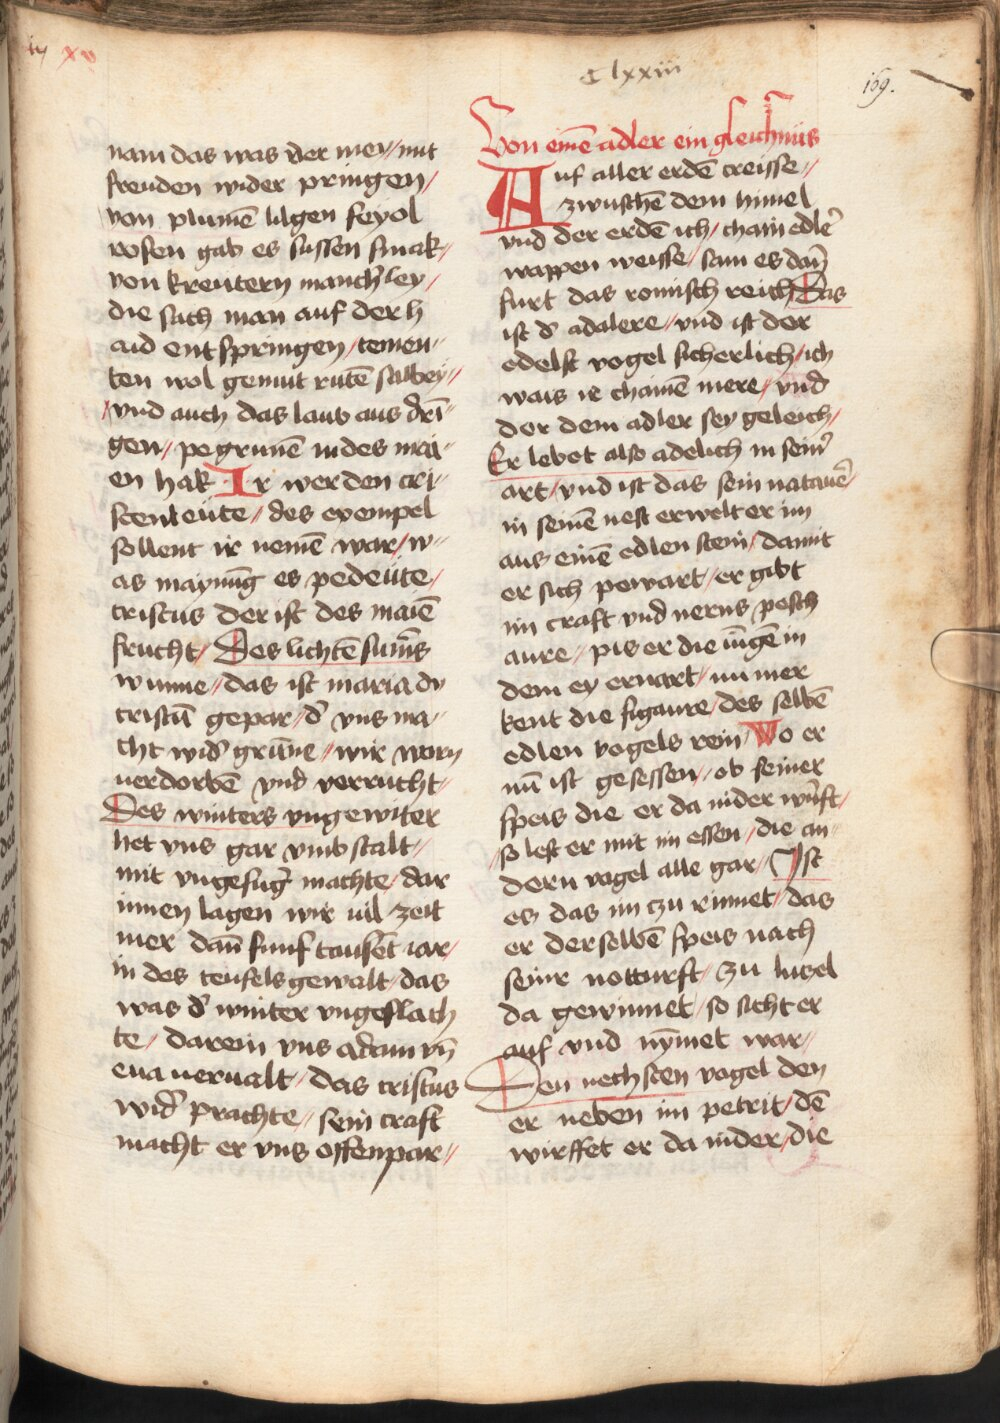 xv
Clxxiii
169.
nam das was der mey // mit
freuden wider pringen /
von plumē lilgen feyol
rosen gab es sussen smak //
von kreutern manchley /
die sach man auf der h
aid entspringen / temen //
ten wol gemut rutē salbey //
/ vnd auch das laub aus dri
gen / pegrunē in des mai
en hak Ir werden cri //
stenleüte // des exempel
sollent ir nemē war / w //
as maynūg es pedeüte /
cristus der ist des maiē
frucht / Des lichtē sum̄s
wunne // das ist maria dy
cristū gepar / d' vns ma //
cht wid' grūne // wir worn
uerdorbē vnd verrucht //
Des winters vngewiter
het vns gar vmb stalt //
mit vngefug' machte / dar
innen lagen wir uil zeit
mer dan̄ funf tausēt iar /
in des teufels gewalt / das
was d' winter vngeslach
te / darein vns adam vn̄
eua uerualt / das cristus
wid' prachte // sein craft
macht er vns offenpar //
Von einē adler ein gleichnüs
Auf aller erdē creisse //
zwuschē dem himel
vnd der erdē ich / chain edle'
wappen weisse / sam es dan̄
furt das romisch reich Das
ist d' adalere // vnd ist der
edelst vogel sicherlich / ich
wais ir chainē mere // vnd
der dem adler sey geleich /
Er lebet also adelich in sein'
art / vnd ist das sein natauer /
in seinē nest erwelt er im
aus einē edlen stein / damit
er sich pewart / er gibt
im craft vnd uerns pesch
aure // pis er die iūgē in
dem ey erwart / nu mer
kent die figaure / des selbē
edlen vogels rein / Wo er
nū ist gesessen // ob seiner
speis die er da nider wurft /
/ so lest er mit im essen / die an //
dern vogel alle gar / Ist
es das im czu rinnet / das
er derselbē speis nach
seinr notturft / zu luczel
da gewinnet / so sicht er
auf vnd nymet war //
Den nechsten vogel den
er neben im petrit / dē
wirffet er da nider / die